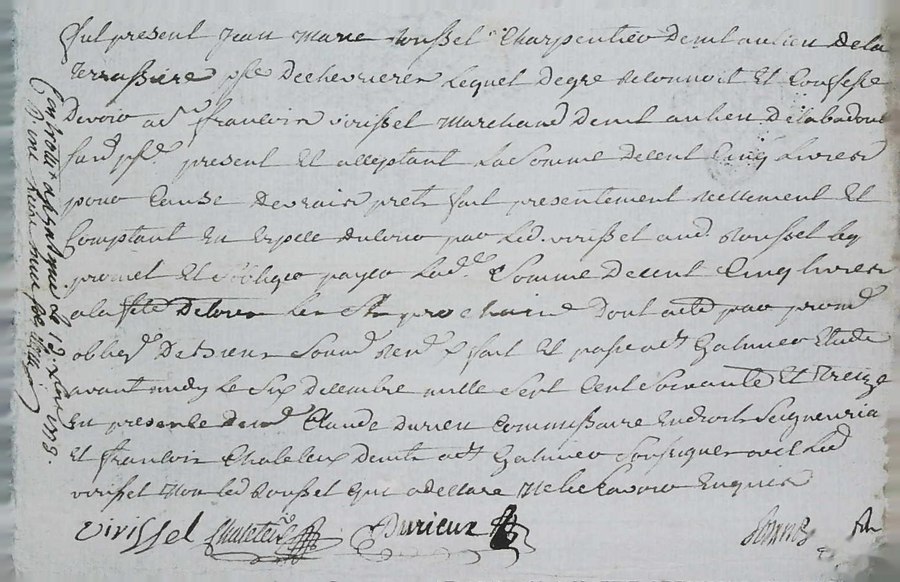 fut present Jean Marie Rousset Charpentier demt au lieu de la
Terrassiere psse de chevrieres lequel de gré reconnoit Et Confesse
Devoir a sr françois virissel Marchand demt au lieu de
psse present Et acceptant La Somme de cent Cinq Livres
pour Cause de vrais prets fait presentement reellement Et
Comptant En Espece du cours par led. virissel aud. Rousset Ley
promet Et s'oblige payer lad. Somme de cent Cinq livres
a la fete de tous Les Sts prochaine Dont acte par prom.
oblig. De biens Soum. ren. fait Et passé a St Galmier Etude
avant midy le Six Decembre mille Sept Cent Soixante Et Treize
En presence de me Claude Durieu Commissaire En droit Seigneuria
Et françois Chaleteix demts a St Galmier Soussignes avec led
virissel Non led Rousset qui a declaré ne le scavoir Enquis
virissel Durieux
Controllé a St Galmier le 13. Xbre 1773.
R. une Livre